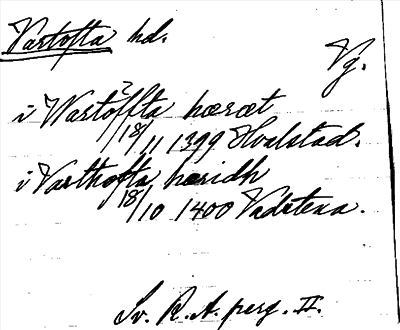 Vartofta hd.
Vg.
i Wartöffta hæræt
18/11 1399 Hvalstad.
i Varthofta hæridh
18/10 1400 Vadstena.
Sv. R. A. perg. II.